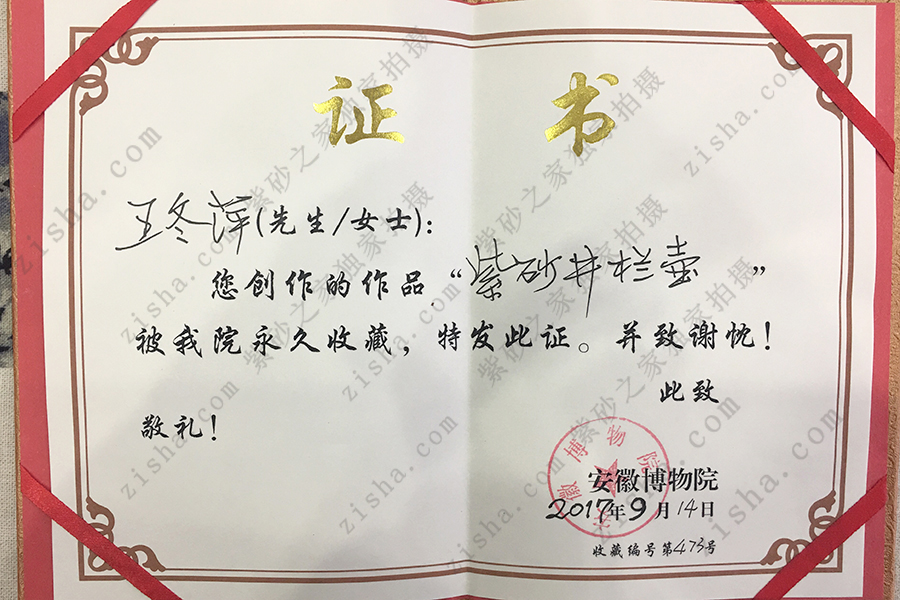 证 书
王冬萍(先生/女士)：
您创作的作品“紫砂井栏壶”
被我院永久收藏，特发此证。并致谢忱！
此致
敬礼！
安徽博物院
安徽博物院
2017年9月14日
收藏编号第473号
紫砂之家独家拍摄
zisha.com